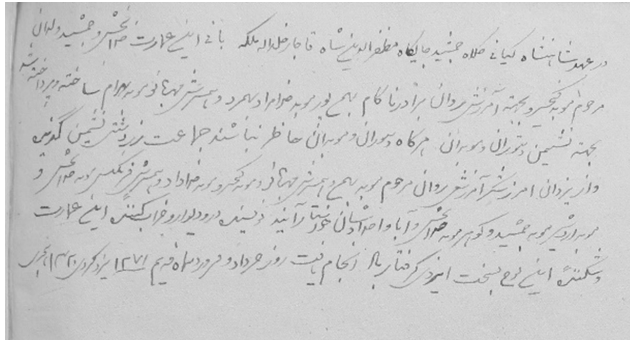 در عهد شاهنشاه کیانی کلاه جمشید جایگاه مظفرالدین شاه قاجار خلد الله ملکه بانی اینعمارت خدابخش و جمشید ولدان
مرحوم موبد کیخسرو بجهة آمرزش روان برادر ناکام بهمن پور موبد خدامراد بهمرد و بهرام ساخته و پرداخته شد
بجهة نشیمن دستوران و موبدان هرگاه دستوران و موبدان حاظر نباشند جماعت زردشتی نشیمن گزینند
و از یزدان امرزشگر آمرزش روان مرحوم موبد بهمن و موبد کیخسرو موبد خداداد و موبد خدابخش و
موبد اردشیر موبد جمشید و گوهر موبد خدابخش و آبا و اجدادشان خواستار آیند نویسنده در و دیوار و خراب کننده اینعمارت
و شکننده این لوح بسخت ایزدی گرفتار باد انجام یافت روز خرداد و فروردینماه قدیم ۱۲۷۱ یزدگردی ۱۳۲۰ هجری